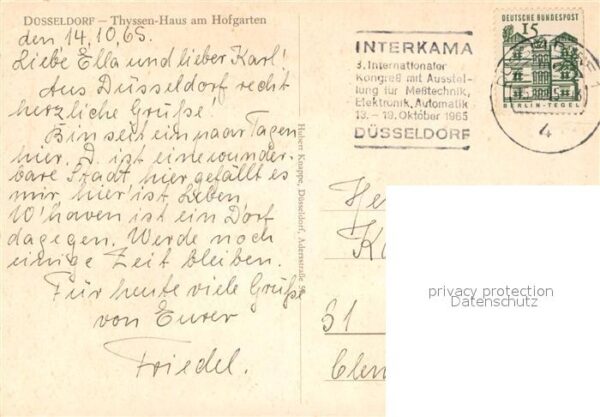 DÜSSELDORF — Thyssen-Haus am Hofgarten
den 14.10.65.
Liebe Ella und lieber Karl!
Aus Düsseldorf recht
herzliche Grüße!
Bin seit ein paar Tagen
hier. D. ist eine wunder-
bare Stadt, hier gefällt es
mir, hier ist Leben,
W'haven ist ein Dorf
dagegen. Werde noch
einige Zeit bleiben.
Für heute viele Grüße
von Eurer
Friedel.
Hubert Knappe, Düsseldorf, Adersstraße
INTERKAMA
3. Internationaler
Kongreß mit Ausstel-
lung für Meßtechnik,
Elektronik, Automatik
13. - 19. Oktober 1965
DÜSSELDORF
DEUTSCHE BUNDESPOST
15
BERLIN-TEGEL
4
He
K
51
privacy protection
Datenschutz